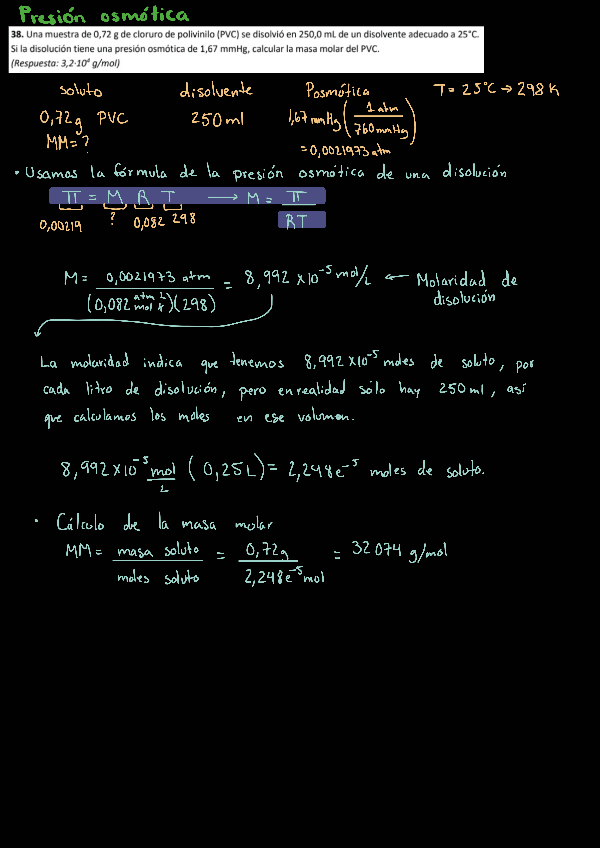 Presión osmótica
38. Una muestra de 0,72 g de cloruro de polivinilo (PVC) se disolvió en 250,0 mL de un disolvente adecuado a 25°C.
Si la disolución tiene una presión osmótica de 1,67 mmHg, calcular la masa molar del PVC.
(Respuesta: 3,2·10⁴ g/mol)
soluto disolvente Posmótica T= 25°C → 298 K
0,72g PVC 250 ml 1,67 mmHg (1 atm / 760 mmHg)
MM= ? = 0,0021973 atm
• Usamos la fórmula de la presión osmótica de una disolución
Π = M R T → M = Π / RT
0,00219 ? 0,082 298
M = 0,0021973 atm / (0,082 atm L / mol K)(298) = 8,992 x10⁻⁵ mol/L ← Molaridad de
disolución
La molaridad indica que tenemos 8,992x10⁻⁵ moles de soluto, por
cada litro de disolución, pero en realidad solo hay 250 ml, así
que calculamos los moles en ese volumen.
8,992x10⁻⁵ mol/L (0,25L) = 2,248e⁻⁵ moles de soluto.
• Cálculo de la masa molar
MM = masa soluto / moles soluto = 0,72g / 2,248e⁻⁵ mol = 32 074 g/mol